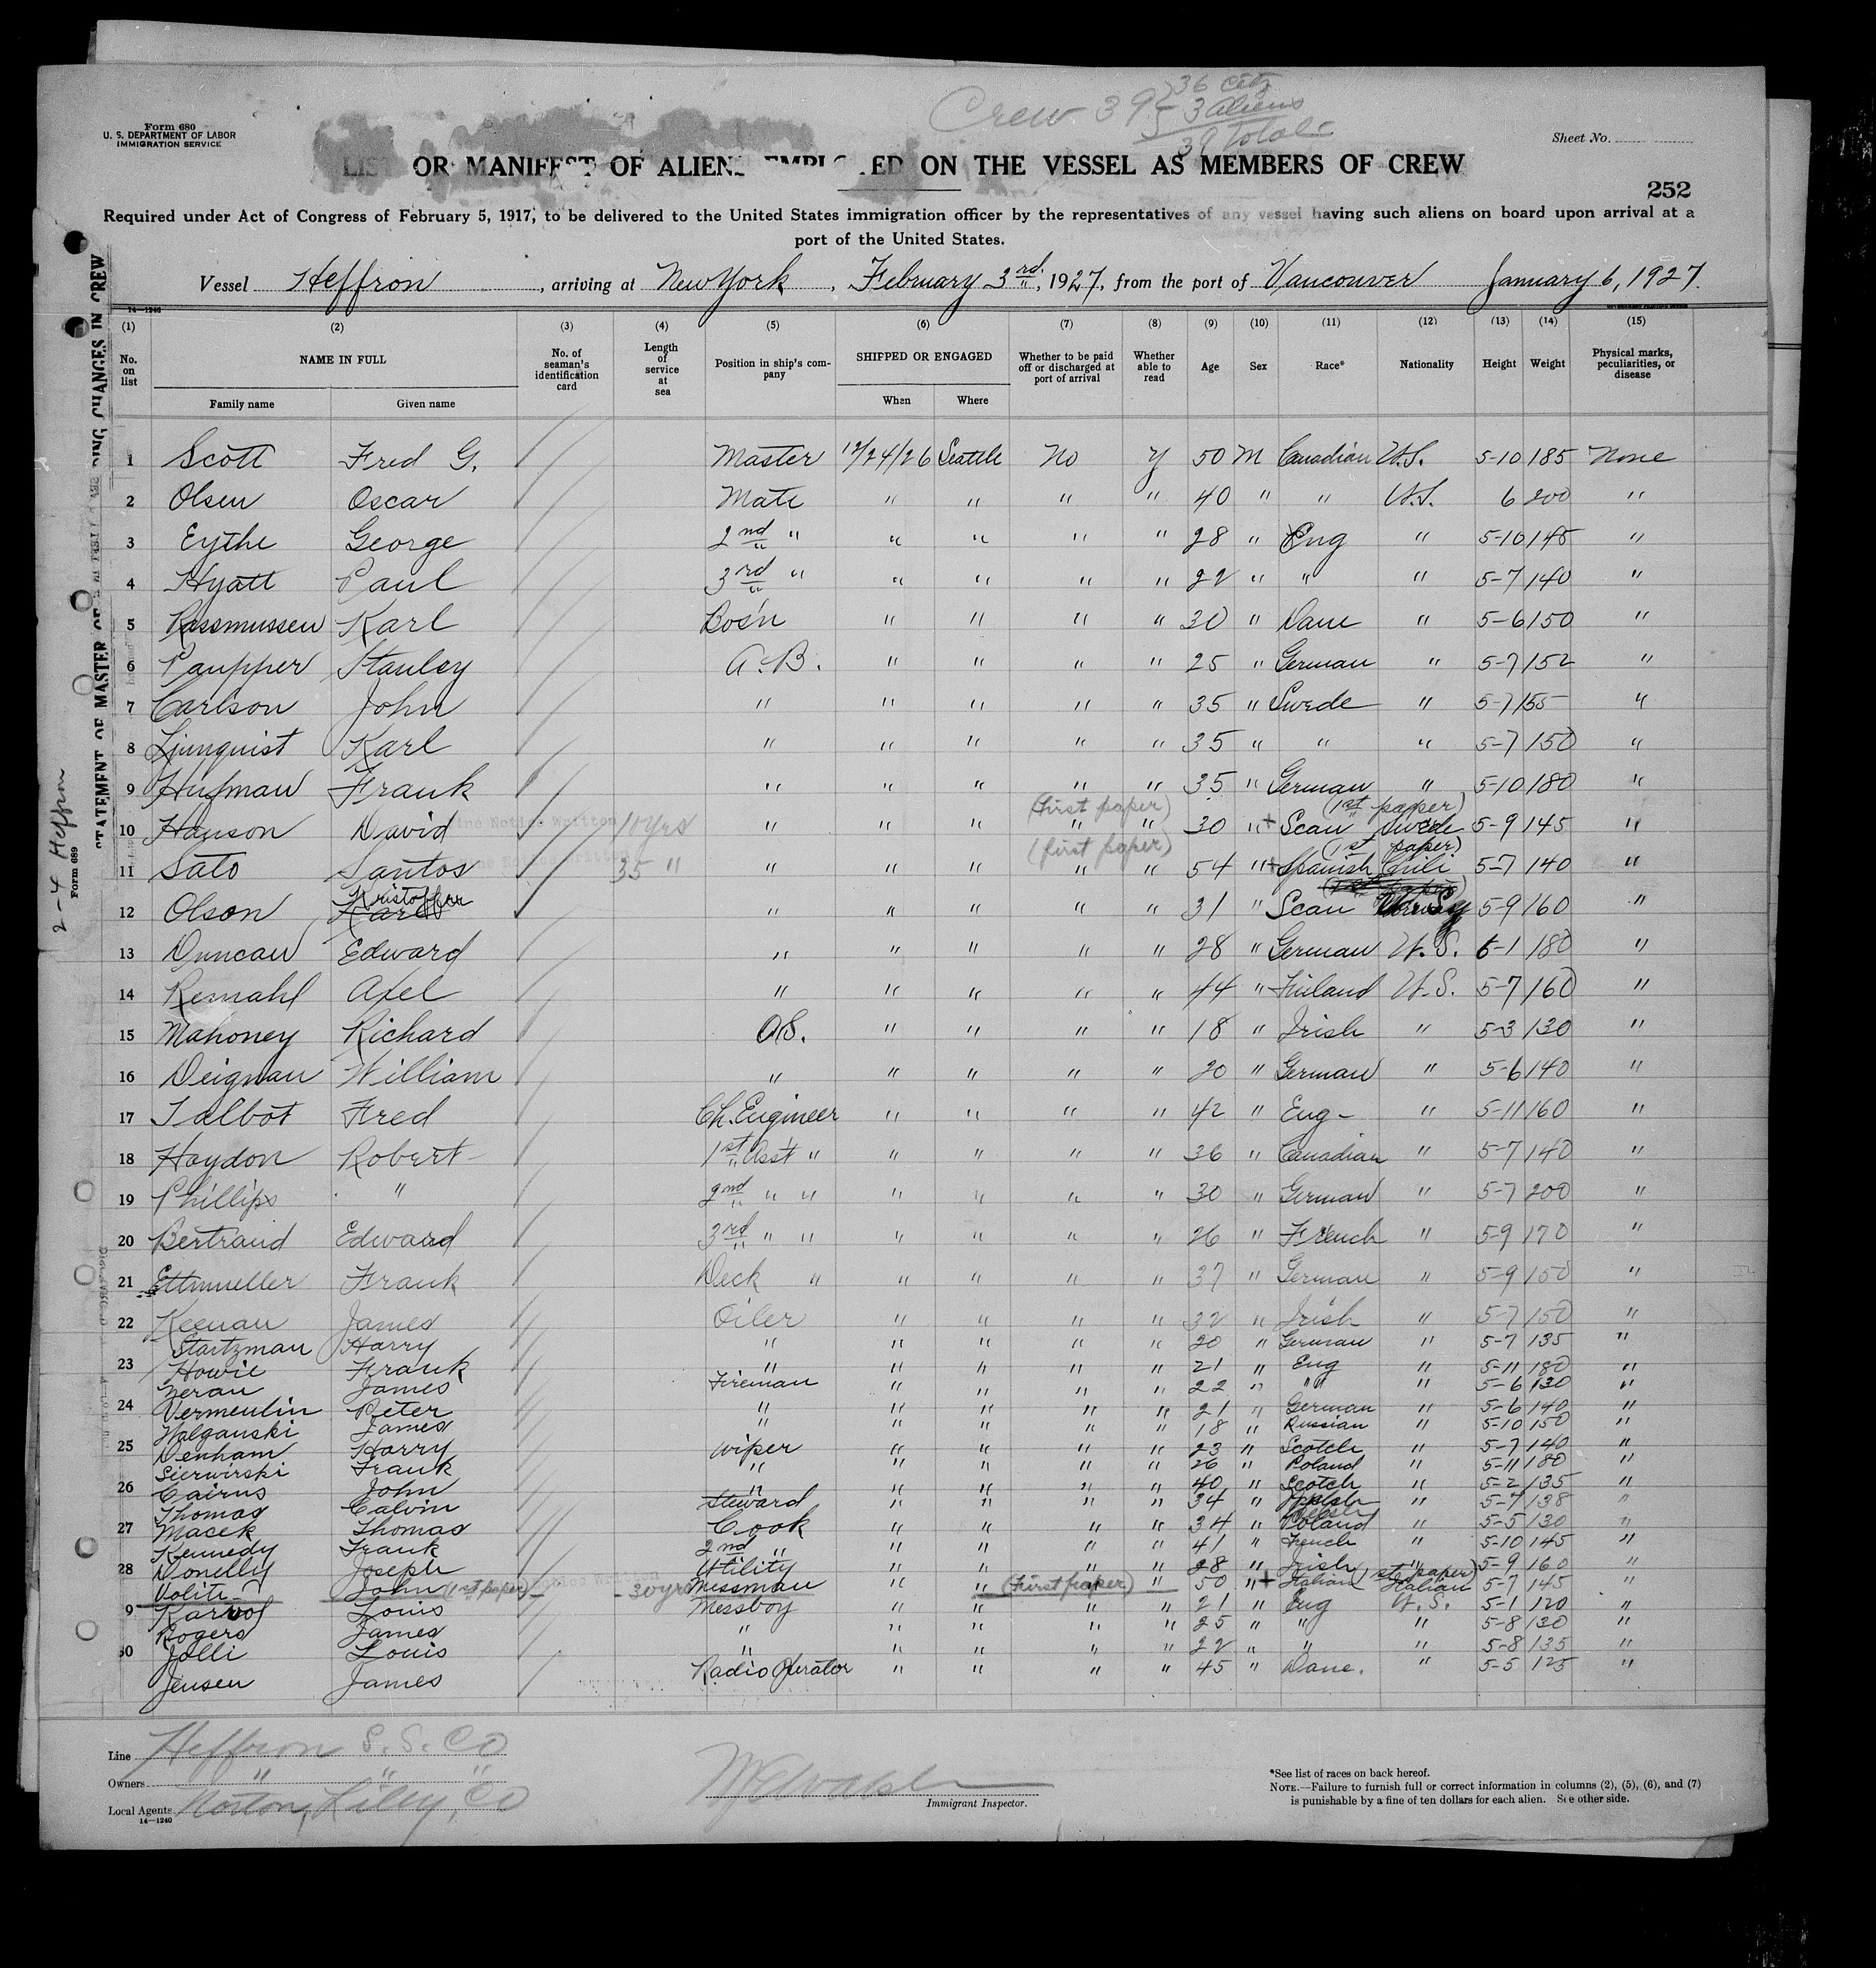 Crew 39 36 Citz
3 aliens
39 Total
Form 680
U. S. DEPARTMENT OF LABOR
IMMIGRATION SERVICE
Sheet No.
LIST OR MANIFEST OF ALIENS EMPLOYED ON THE VESSEL AS MEMBERS OF CREW
252
Required under Act of Congress of February 5, 1917, to be delivered to the United States immigration officer by the representatives of any vessel having such aliens on board upon arrival at a
port of the United States.
Vessel Heffron, arriving at New York, February 3rd, 1927, from the port of Vancouver January 6, 1927.
14-1240
(1) (2) (3) (4) (5) (6) (7) (8) (9) (10) (11) (12) (13) (14) (15)
No. on list NAME IN FULL No. of seaman's identification card Length of service at sea Position in ship's company SHIPPED OR ENGAGED Whether to be paid off or discharged at port of arrival Whether able to read Age Sex Race* Nationality Height Weight Physical marks, peculiarities, or disease
Family name Given name When Where
1 Scott Fred G. Master 12/24/26 Seattle No Y 50 M Canadian U.S. 5-10 185 None
2 Olsen Oscar Mate " " " " 40 " " U.S. 6 200 "
3 Eythe George 2nd " " " " " 28 " Eng " 5-10 145 "
4 Hyatt Paul 3rd " " " " " 22 " " " 5-7 140 "
5 Rassmussen Karl Bos'n " " " " 30 " Dane " 5-6 150 "
6 Paupper Stanley A.B. " " " " 25 " German " 5-7 152 "
7 Carlson John " " " " " 35 " Swede " 5-7 155 "
8 Ljunquist Karl " " " " " 35 " " " 5-7 150 "
9 Hufman Frank " " " " " 35 " German " 5-10 180 "
(first paper) (1st paper)
10 Hanson David 10 yrs " " " " " 30 " + Scan Swede 5-9 145 "
(first paper) (1st paper)
11 Sato Santos 35 " " " " " " 54 " + Spanish Chili 5-7 140 "
Kristoffer
12 Olson Karl " " " " " 31 " Scan 5-9 160 "
13 Duncan Edward " " " " " 28 " German U.S. 6-1 180 "
14 Remahl Axel " " " " " 44 " Finland U.S. 5-7 160 "
15 Mahoney Richard O.S. " " " " 18 " Irish " 5-3 130 "
16 Deignan William " " " " " 20 " German " 5-6 140 "
17 Talbot Fred Ch. Engineer " " " " 42 " Eng - " 5-11 160 "
18 Haydon Robert 1st Ass't " " " " " 36 " Canadian " 5-7 140 "
19 Phillips " 2nd " " " " " " 30 " German " 5-7 200 "
20 Bertrand Edward 3rd " " " " " " 26 " French " 5-9 170 "
21 Ettmueller Frank Deck " " " " " 37 " German " 5-9 150 "
22 Keenan James Oiler " " " " 32 " Irish " 5-7 150 "
Startzman Harry " " " " " 20 " German " 5-7 135 "
23 Howie Frank " " " " " 21 " Eng " 5-11 180 "
Neran James Fireman " " " " 22 " " " 5-6 130 "
24 Vermeulin Peter " " " " " 21 " German " 5-6 140 "
Walganski James " " " " " 18 " Russian " 5-10 150 "
25 Denham Harry Wiper " " " " 23 " Scotch " 5-7 140 "
Sierwirski Frank " " " " " 26 " Poland " 5-11 180 "
26 Cairns John " " " " " 40 " Scotch " 5-2 135 "
Thomas Calvin Steward " " " " 34 " Welsh " 5-7 138 "
27 Macek Thomas Cook " " " " 34 " Poland " 5-5 130 "
Kennedy Frank 2nd " " " " " 41 " French " 5-10 145 "
28 Donelly Joseph Utility " " " " 28 " Irish " 5-9 160 "
Voliti John (1st paper) 30 yrs Messman " " (First paper) " 50 " + Italian (1st paper) Italian 5-7 145 "
9 Karvol Louis Messboy " " " " 21 " Eng U.S. 5-1 120 "
Rogers James " " " " " 25 " " " 5-8 130 "
30 Jolli Louis " " " " " 22 " " " 5-8 135 "
Jensen James Radio Operator " " " " 45 " Dane. " 5-5 125 "
Line Heffron S.S. Co
Owners " "
Local Agents Norton, Lilley, Co
14-1240
Immigrant Inspector.
*See list of races on back hereof.
NOTE.—Failure to furnish full or correct information in columns (2), (5), (6), and (7)
is punishable by a fine of ten dollars for each alien. See other side.
STATEMENT OF MASTER OF
CHANGES IN CREW
Form 689
2-4 Heffron